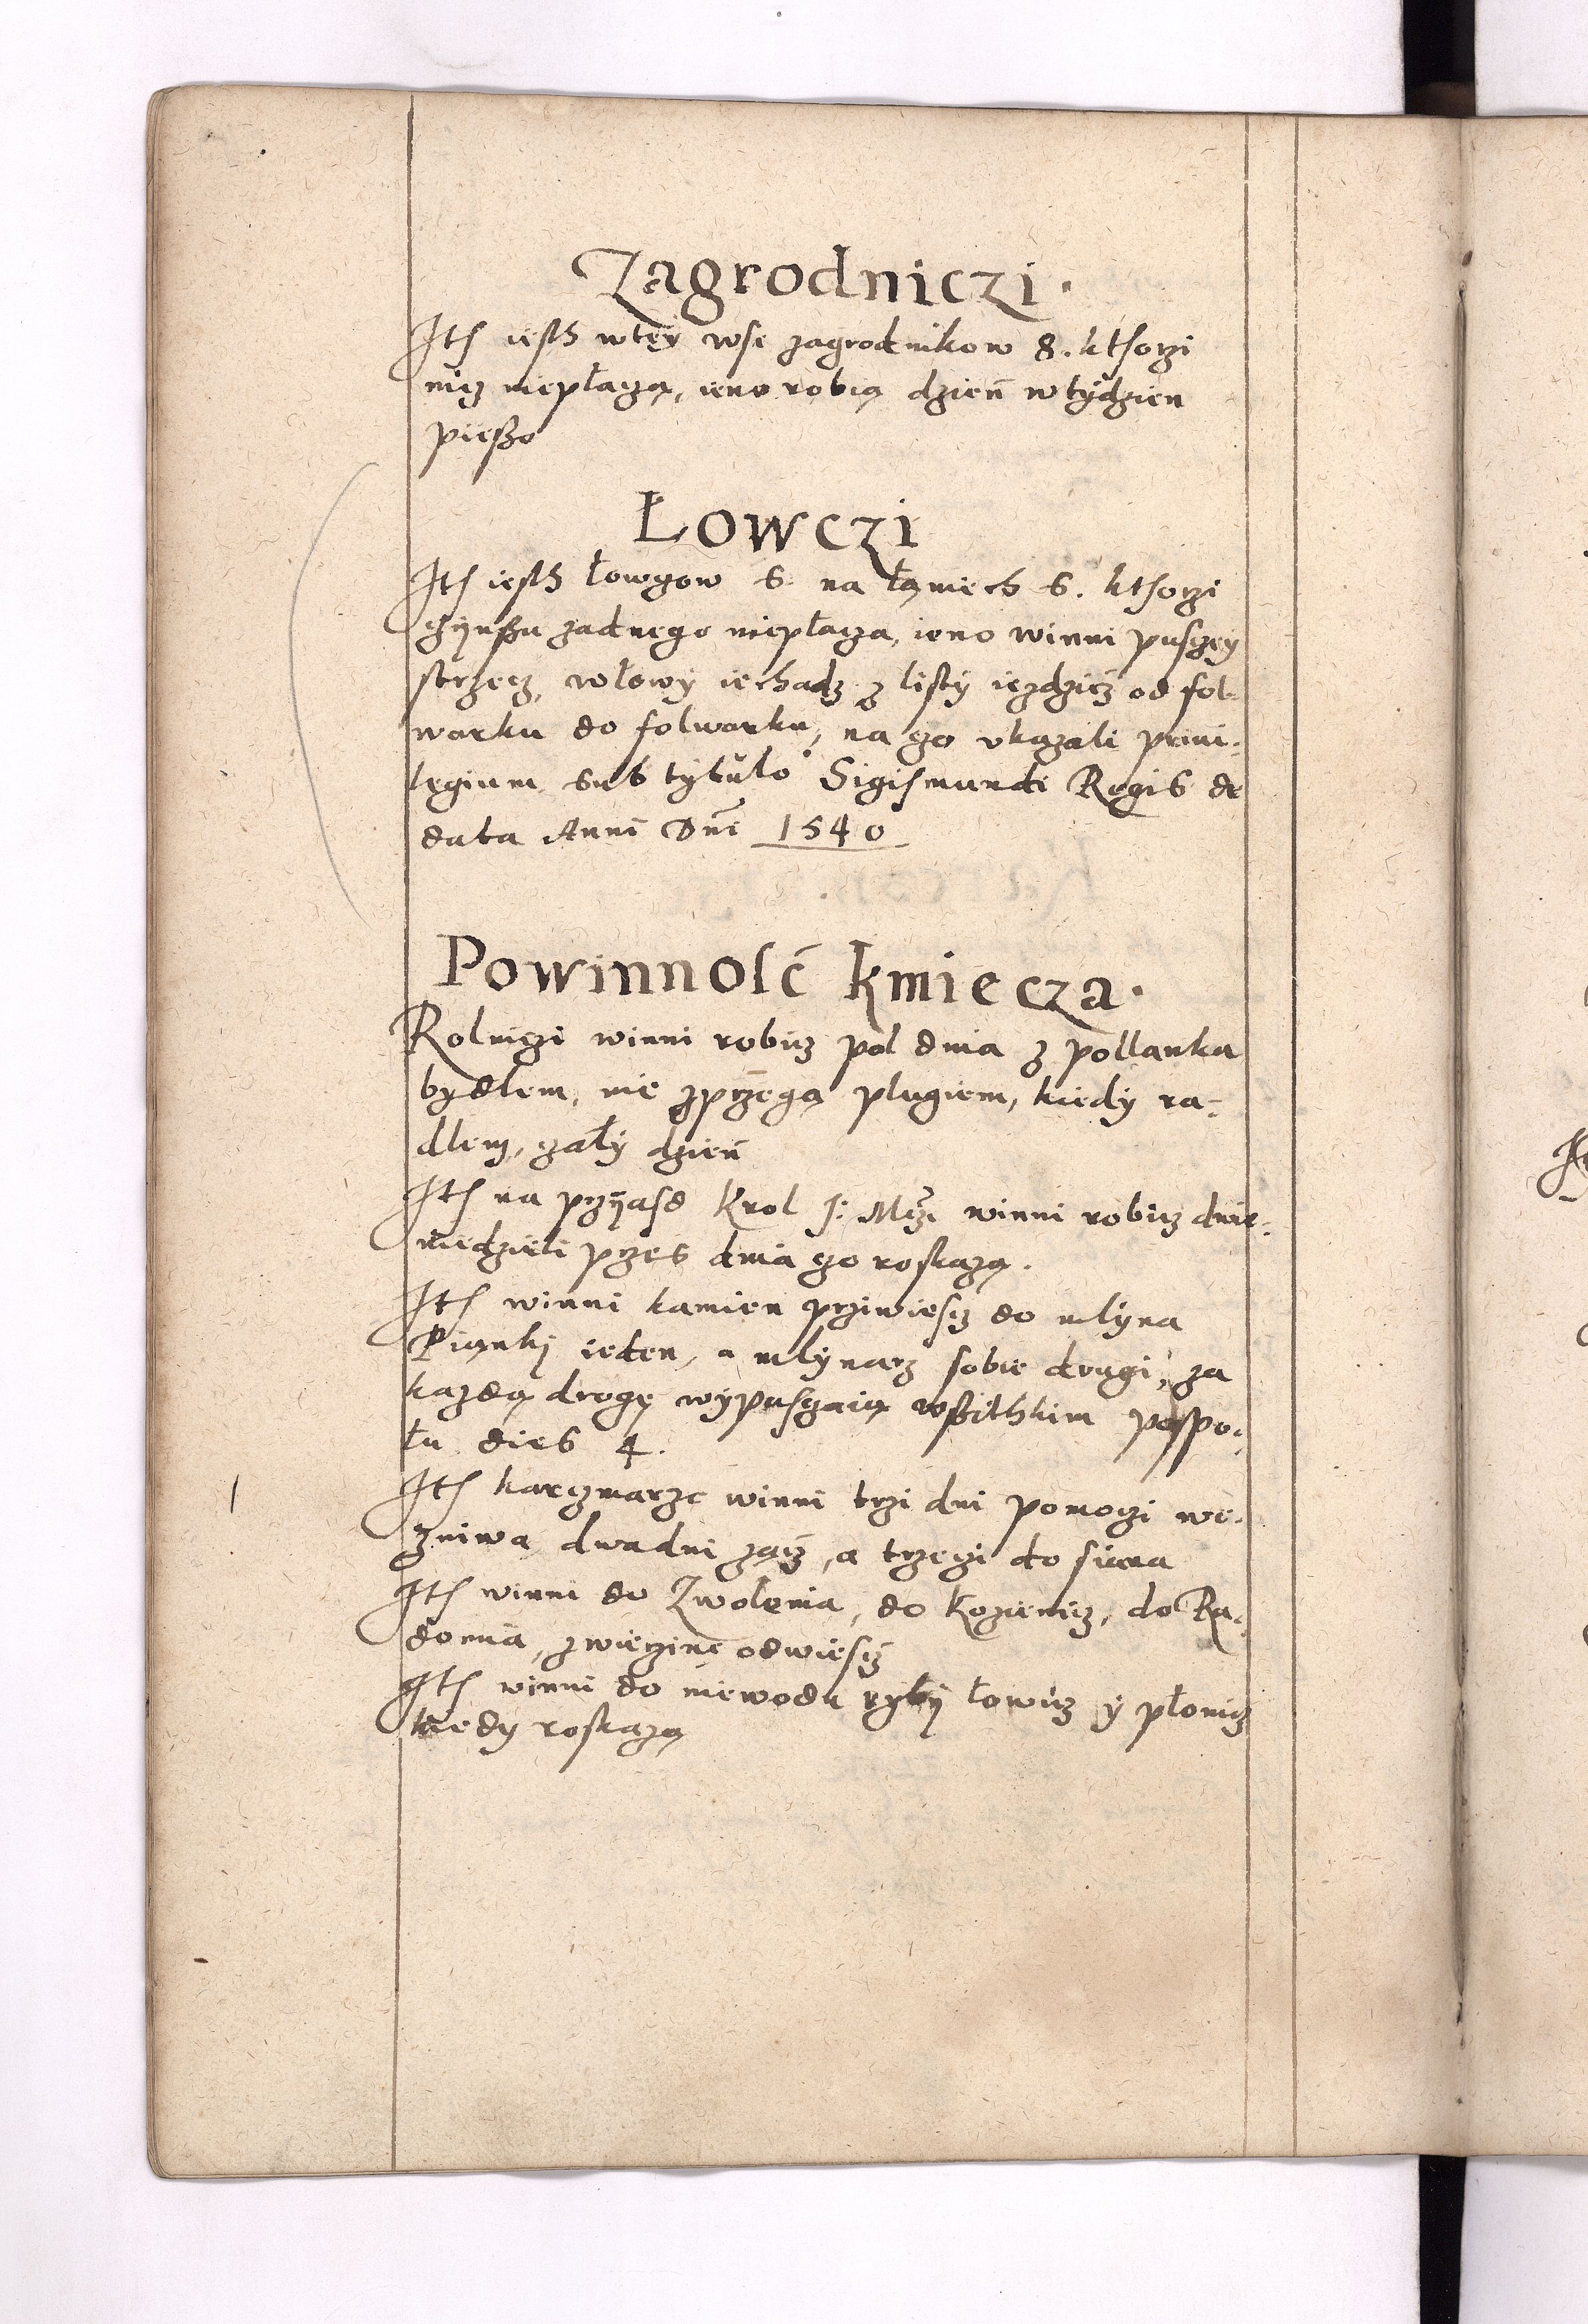 Zagrodniczi.
Ite iesth wtey wsi zagrodnikow 8. kthorzi
nicz nieplaczą, ieno robią dzień w tydzien
pieszo
Łowczi
Ite iesth łowczow 6 na łaniech 6. kthorzi
czijnszu zadnego nieplaczą, ieno winni pusczey
strzecz, włowy iechadz z listy iezdzicz od fol-
warku do folwarku, na czo ukazali priui-
legium sub tytulo Sigismundi Regis de
data Anni Dni 1540
Powinnosć kmiecza.
Rolniczi winni robicz pol dnia z pollanka
bydlem, nie zprzęgą plugiem, kiedy ra-
dlem, czały dzień
Ite na przijasd Krol J: Mcz winni robicz dwie
niedzieli przes dnia czo roskazą.
Ite winni kamien prziwiescz do mlyna
Pianki ieden, a mlynarz sobie drugi, za
kazdą drogę wypusczaią wszithkim pospo-
łu dies 4.
Ite karczmarze winni trzi dni pomoczi we
zniwa dwa dni zącz, a trzeczi do siana
Ite winni do Zwolenia, do Kozienicz, do Ra-
domia, zwierzinę odwiescz
Ite winni do niewoda ryby łowicz y płonicz
kiedy roskazą